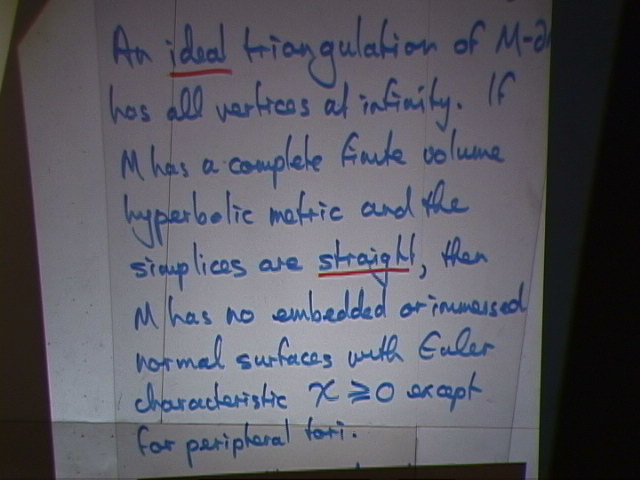 An ideal triangulation of M-∂
has all vertices at infinity. If
M has a complete finite volume
hyperbolic metric and the
simplices are straight, then
M has no embedded or immersed
normal surfaces with Euler
characteristic χ ⩾ 0 except
for peripheral tori.